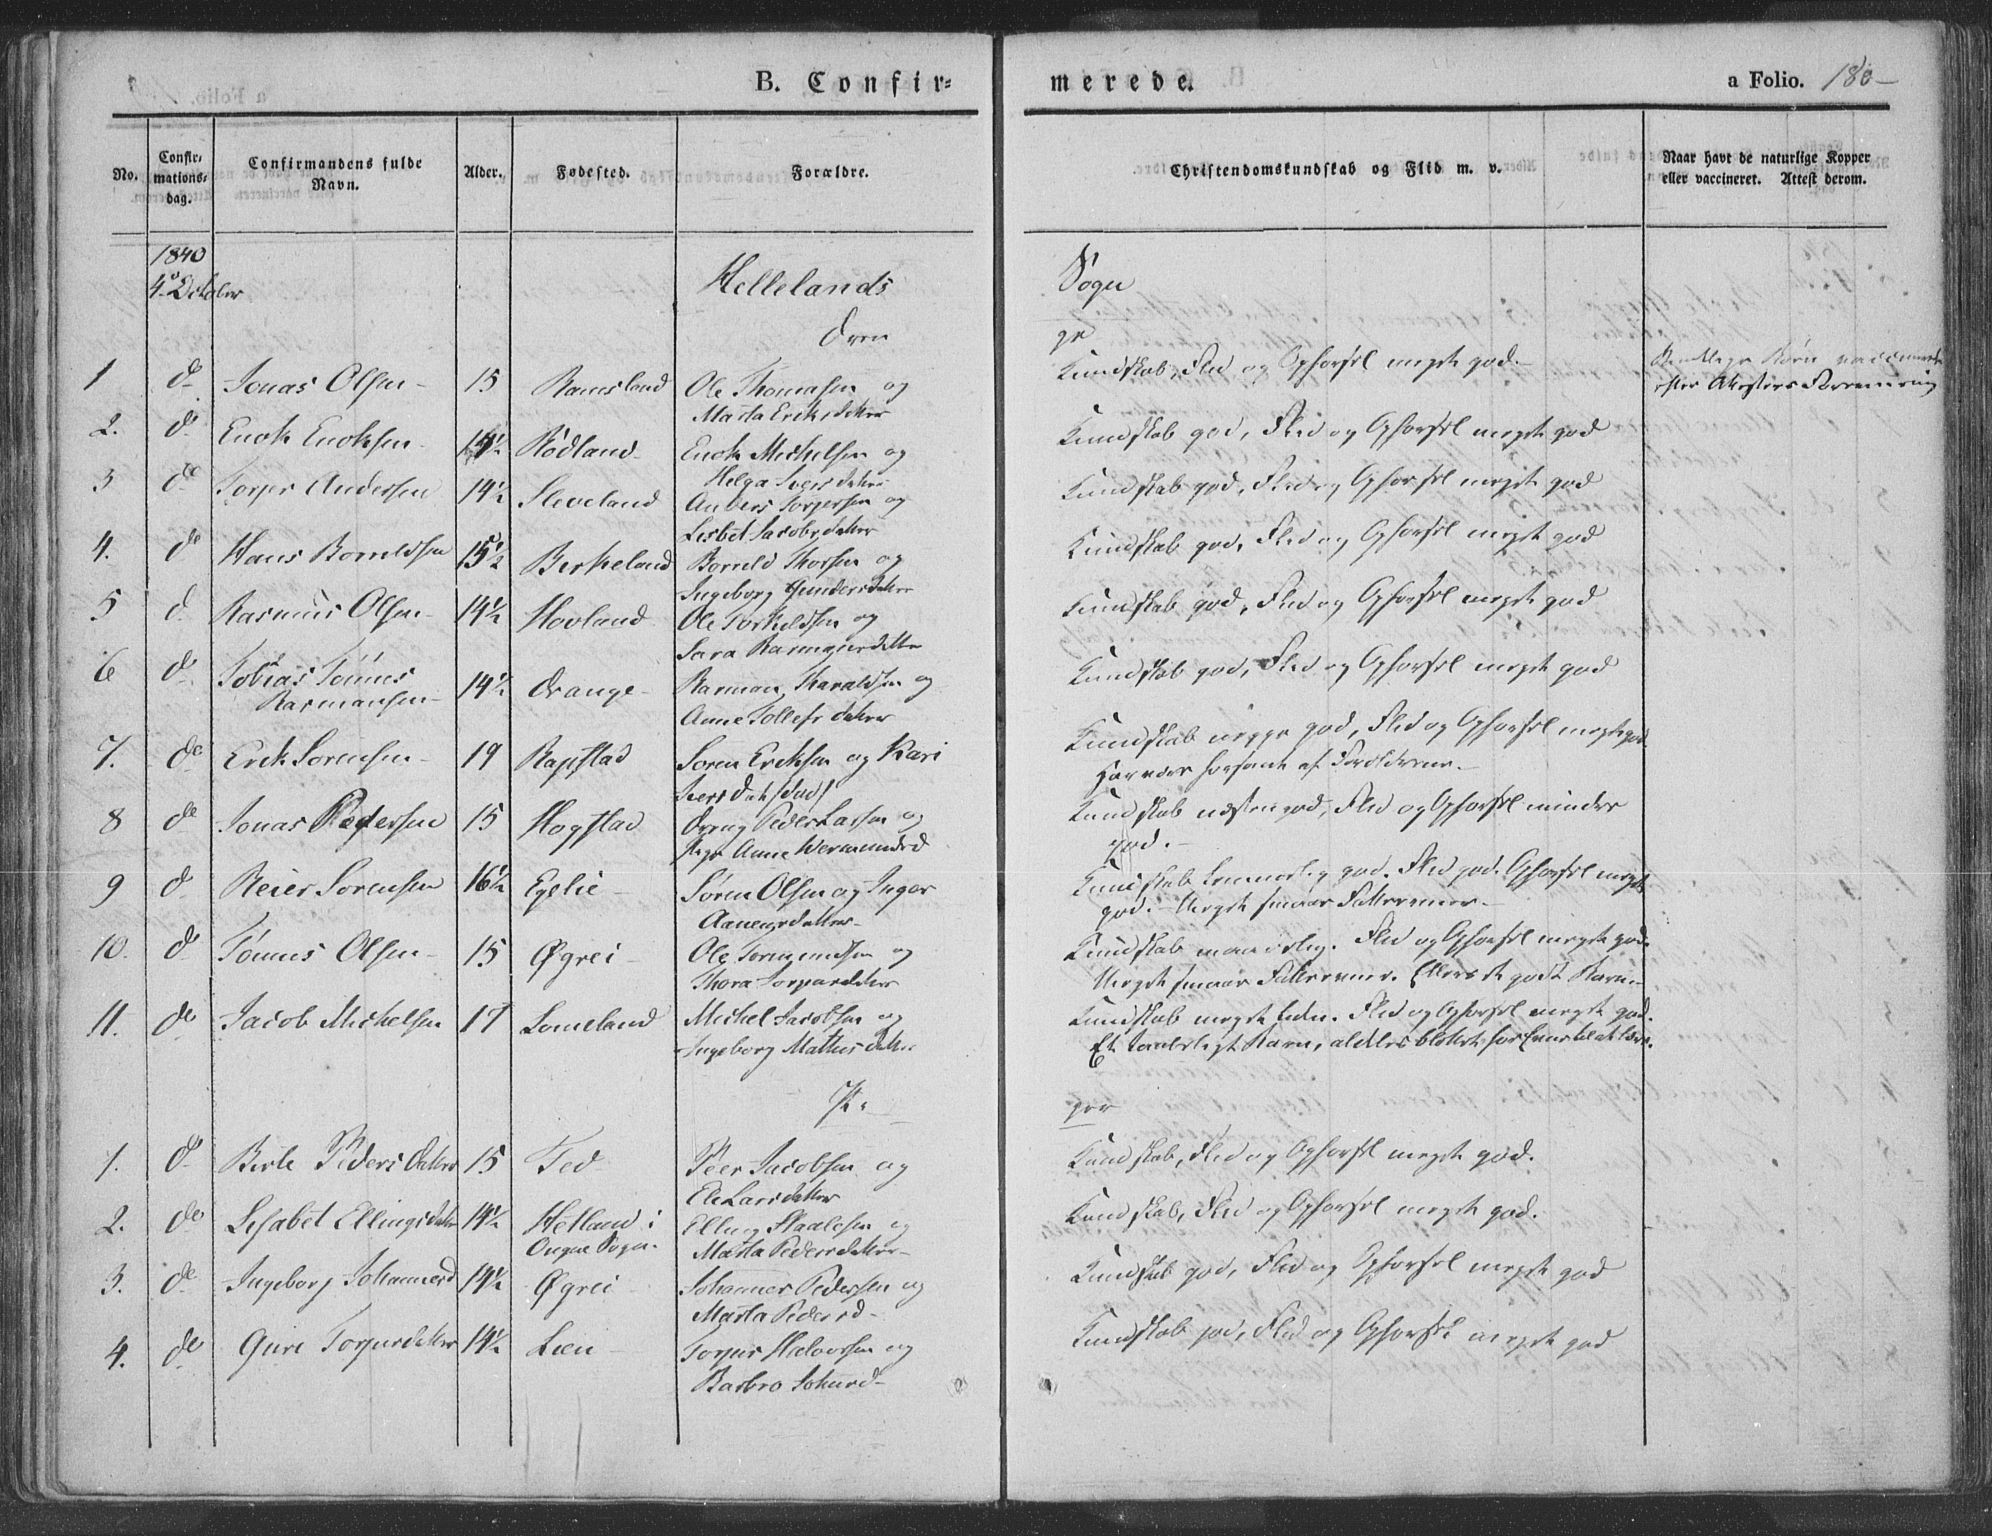 B. Confir=
merede.
a Folio. 180-
No.
Confir-
mations-
dag.
Confirmandens fulde
Navn.
Alder.
Fødested.
Forældre.
Christendomskundskab og Flid m. v.
Naar havt de naturlige Kopper
eller vaccineret. Attest derom.
1840
4 October
Hellelands
Sogn
Dren
ge
1 do Jonas Olsen 15 Ramsland Ole Thomasen og
Marta Eriksdatter
Kundskab, Flid og Opførsel meget god.
2. do Enok Enoksen 14½ Rødland Enok Michelsen og
Helga Iversdatter
Kundskab god, Flid og Opførsel meget god
3 do Torger Andersen 14½ Sleveland Anders Torgersen og
Lisbet Jacobsdatter
Kundskab god, Flid og Opførsel meget god
4. do Hans Boruldsen 15½ Birkeland Boruld Thorsen og
Ingeborg Gundersdatter
Kundskab god, Flid og Opførsel meget god
5 do Rasmus Olsen 14½ Hovland Ole Torkildsen og
Sara Rasmusdatter
Kundskab god, Flid og Opførsel meget god
6 do Tobias Tönnes
Rasmusen 14½ Drange Rasmus Haraldsen og
Anne Tollefsdatter
Kundskab god, Flid og Opførsel meget god
7. do Erik Sørensen 19 Rapstad Søren Eriksen og Kari
Iversdatter
Kundskab neppe god, Flid og Opførsel meget god.
Har været forsømt af Forældrene.
8 do Jonas Pedersen 15 Hogstad Peder Larsen og
Pige Anne Wermundsd
Kundskab næsten god, Flid og Opførsel mindre
god.
9 do Reier Sørensen 16½ Egelie Søren Olsen og Inger
Aanensdatter
Kundskab temmelig god. Flid god. Opførsel meget
god. Meget smaae Fatteevner.
10. do Tönnes Olsen 15 Øgrei Ole Tormundsen og
Thora Torgersdatter
Kundskab maadelig. Flid og Opførsel meget god.
Meget smaae Fatteevner. Ellers et godt Barn.
11. do Jacob Michelsen 17 Lomeland Michel Jacobsen og
Ingeborg Mathiasdatter
Kundskab meget liden. Flid og Opførsel meget god.
Et Barn, aldeles blottet for Evne til at lære.
Pi-
ger
1. do Berte Pedersdatter 15 Ted Peer Jacobsen og
Eli Larsdatter
Kundskab, Flid og Opførsel meget god.
2. do Lisabet Ellingsdatter 14½ Hetland i
Ougne Sogn. Elling Staalesen og
Marta Pedersdatter
Kundskab, Flid og Opførsel meget god.
3. do Ingeborg Johannesd 14½ Øgrei Johannes Pedersen og
Marta Pedersd
Kundskab god, Flid og Opførsel meget god
4. do Guri Torgersdatter 14½ Lien Torger Halvorsen og
Barbro Johnsd
Kundskab god, Flid og Opførsel meget god